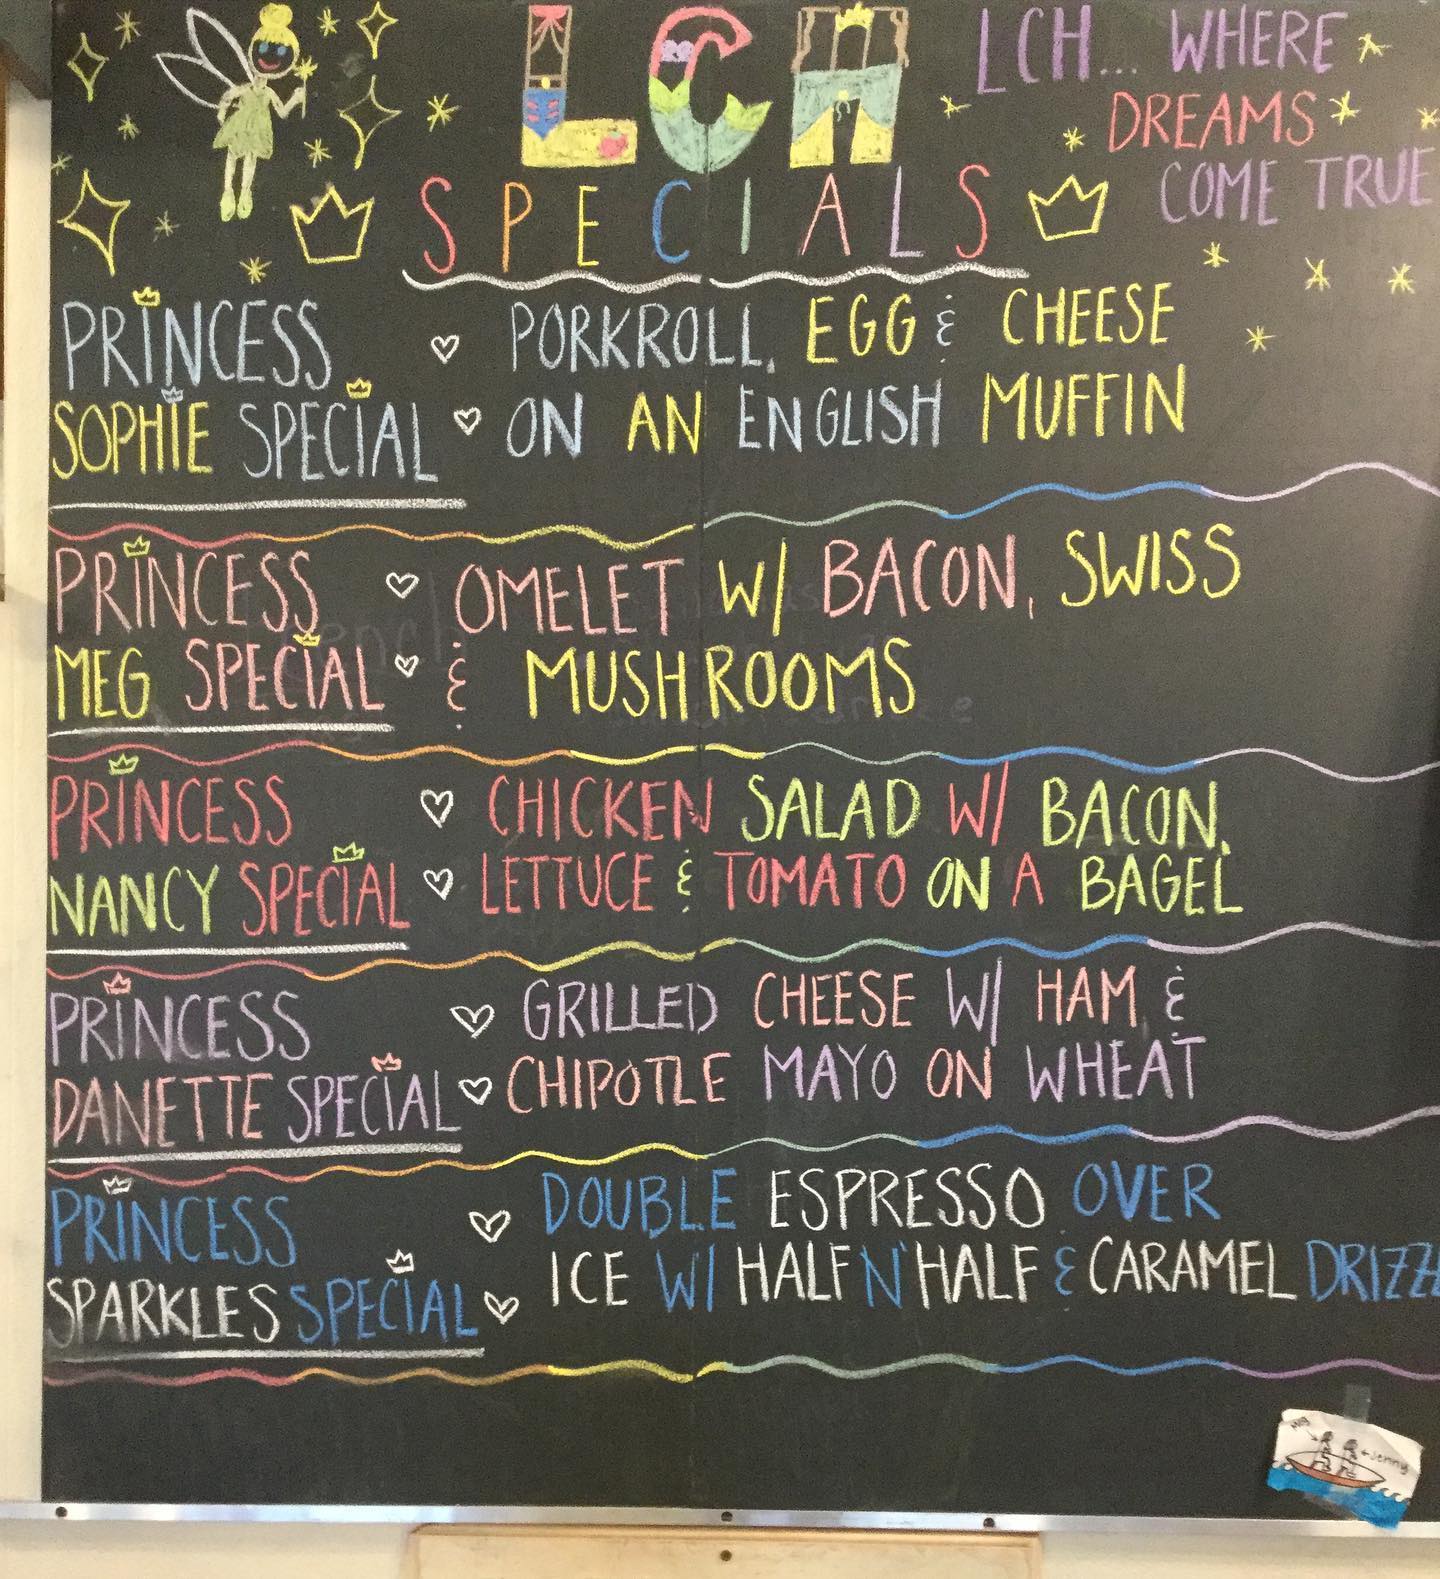 LCH
SPECIALS
LCH... WHERE
DREAMS
COME TRUE
PRINCESS
SOPHIE SPECIAL
PORKROLL, EGG & CHEESE
ON AN ENGLISH MUFFIN
PRINCESS
MEG SPECIAL
OMELET W/ BACON, SWISS
& MUSHROOMS
PRINCESS
NANCY SPECIAL
CHICKEN SALAD W/ BACON,
LETTUCE & TOMATO ON A BAGEL
PRINCESS
DANETTE SPECIAL
GRILLED CHEESE W/ HAM &
CHIPOTLE MAYO ON WHEAT
PRINCESS
SPARKLES SPECIAL
DOUBLE ESPRESSO OVER
ICE W/ HALF N' HALF & CARAMEL DRIZZ
Meg
Jenny